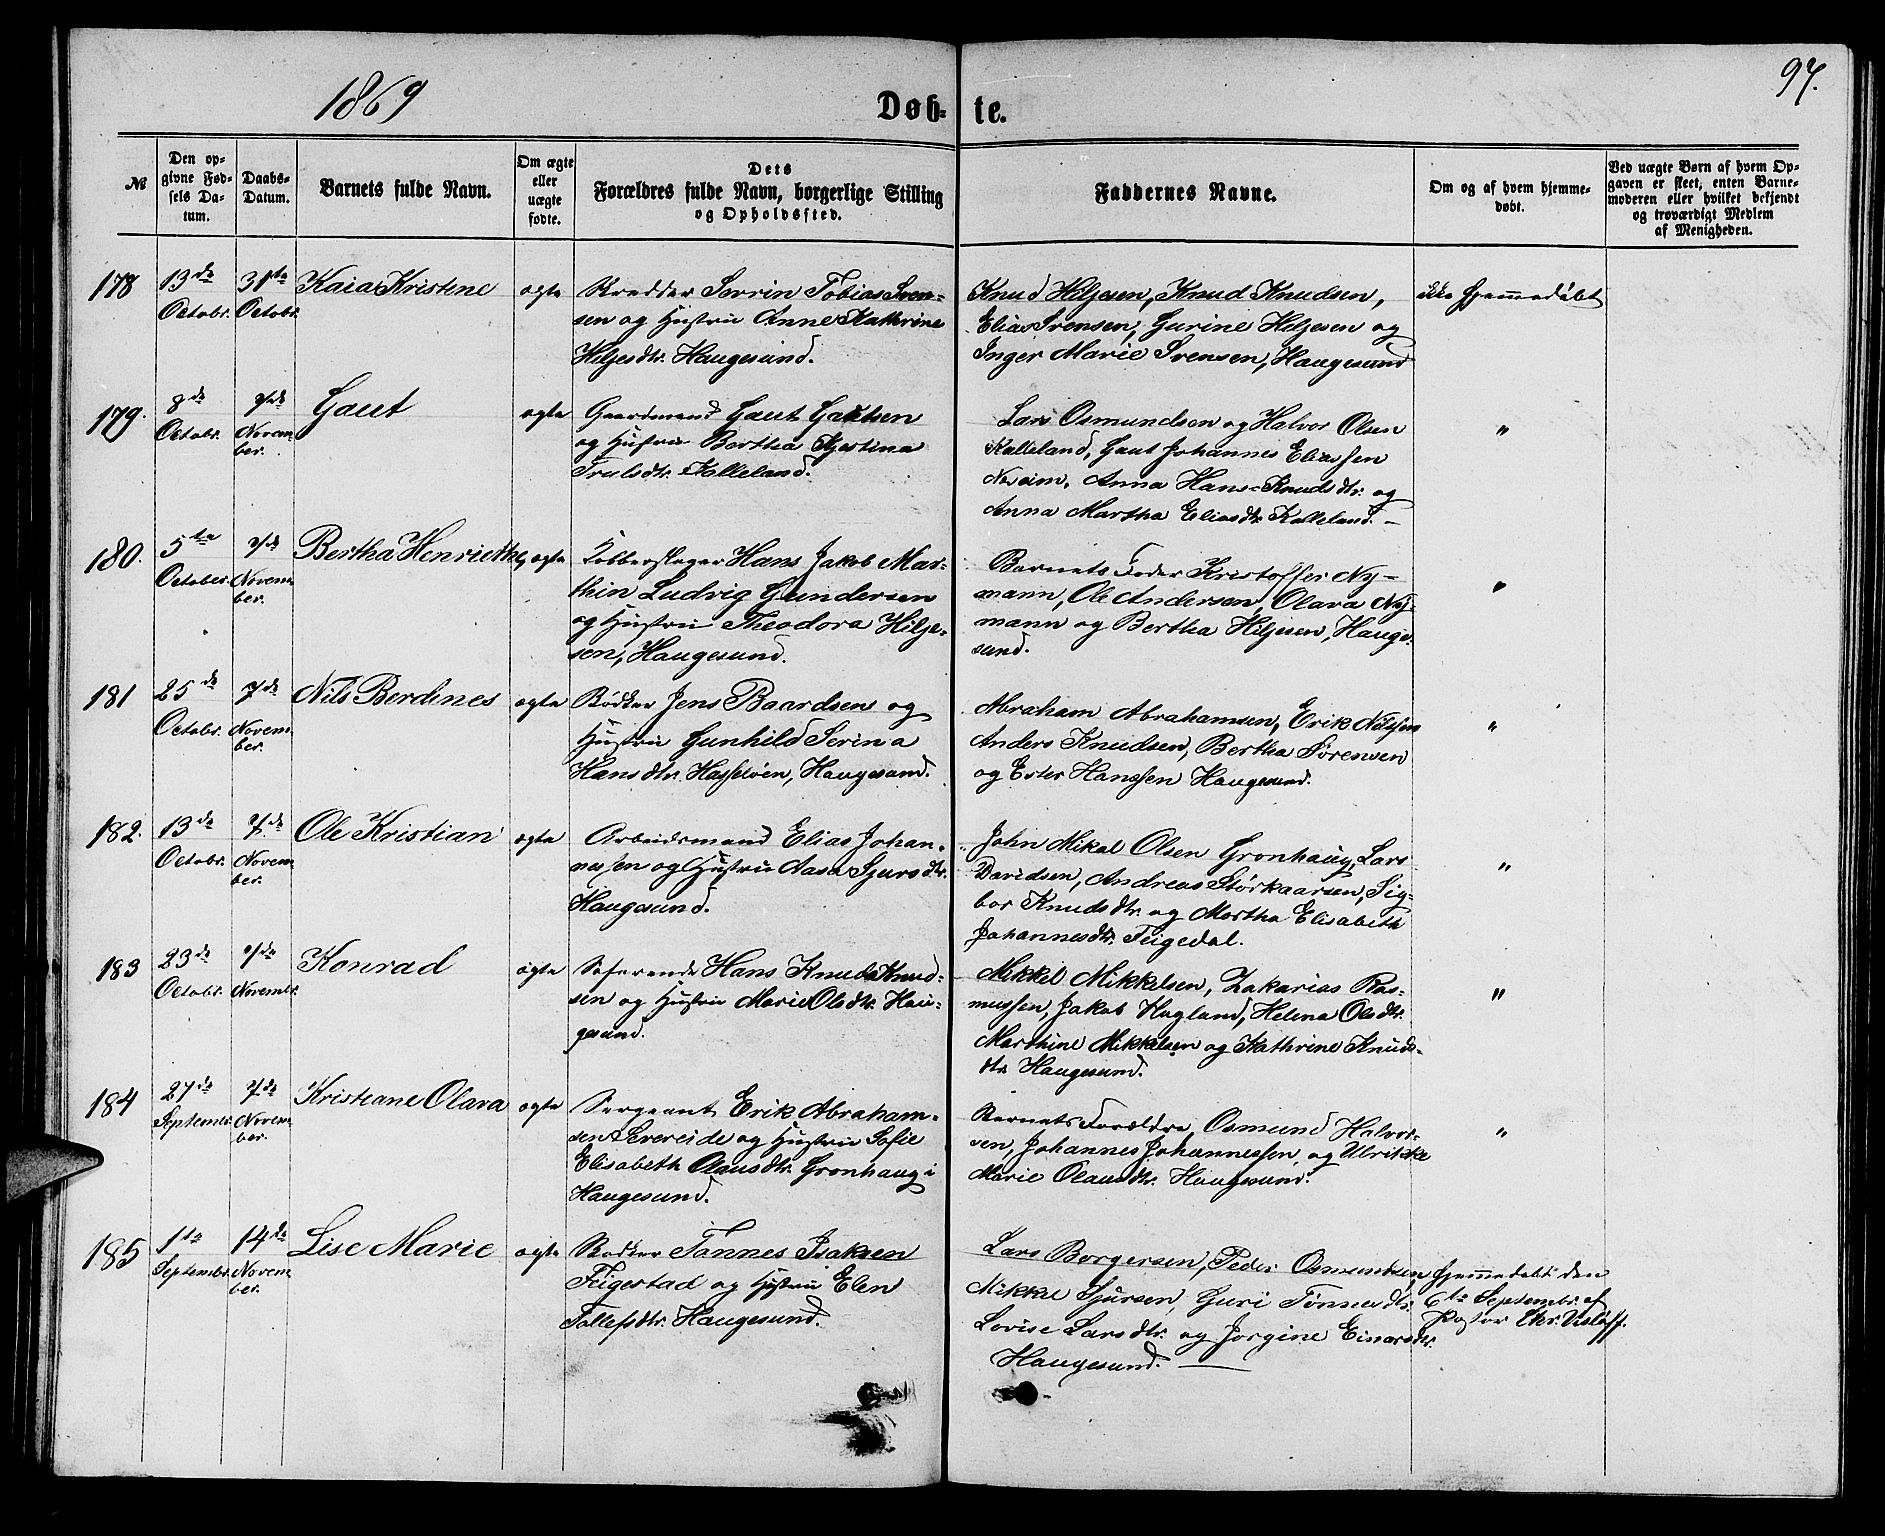 1869
Døb-
te.
97.
№
Den op-
givne Fød-
sels Da-
tum.
Daabs-
Datum.
Barnets fulde Navn.
Om ægte
eller
uægte
fødte.
Dets
Forældres fulde Navn, borgerlige Stilling
og Opholdssted.
Faddernes Navne.
Om og af hvem hjemme-
døbt.
Ved uægte Børn af hvem Op-
gaven er skeet, enten Barne-
moderen eller hvilket bekjendt
og troværdigt Medlem
af Menigheden.
178
13de
Octobr.
31te
Octobr.
Kaia Kristine
ægte
Skrædder Serrin Tobias Sven-
sen og Hustru Anne Kathrine
Hiljesdtr. Haugesund.
Knud Hiljesen, Knud Knudsen,
Elias Svensen, Gurine Hiljesen og
Inger Marie Svensen, Haugesund
ikke hjemmedøbt
179.
8de
Octobr.
7de
Novem-
ber.
Gaut
ægte
Gaardmand Gaut Gautsen
og Hustru Bertha Kjestina
Trulsdtr. Kalleland.
Lars Osmundsen og Halvor Olsen
Kalleland, Gaut Johannes Eliassen
Anna Hans-Knudsdtr. og
Anna Martha Eliasdtr. Kalleland. –
"
180.
5te
October.
7de
Novem-
ber.
Bertha Henriette,
ægte
Kobberslager Hans Jakob Mar-
thin Ludvig Gundersen
og Hustru Theodora Hilje-
sen, Haugesund.
Barnets Fader Kristoffer Ny-
mann, Ole Andersen, Olava Ny-
mann og Bertha Hiljesen, Hauge-
sund.
"
181
25de
Octobr.
7de
Novem-
ber.
Nils Berdines
ægte
Bødker Jens Baardsen og
Hustru Gunhild Serina
Hansdtr. Hasseløen, Haugesund.
Abraham Abrahamsen, Erik Nilssen
Anders Knudsen, Bertha Sørensen
og Ester Hanssen Haugesund.
"
182.
13de
Octobr.
7de
Novem-
ber.
Ole Kristian
ægte
Arbeidsmand Elias Johan-
nessen og Hustru Aasa Sjursdtr.
Haugesund.
John Mikal Olsen Grønhaug, Lars
Davidsen, Andreas Størkaarsen, Sig-
bor Knudsdtr. og Martha Elisabeth
Johannesdtr. Feigedal.
"
183
23de
Octobr.
7de
Novembr.
Konrad
ægte
Søfarende Hans Knuds Knud-
sen og Hustru Marie Olsdtr. Hau-
gesund.
Mikkel Mikkelsen, Zakarias Ras-
mussen, Jakob Hagland, Helena Olsdtr.
Marthine Mikkelsen og Kathrine Knuds-
dtr. Haugesund.
"
184
27de
Septembr.
7de
Novem-
ber.
Kristiane Olava
ægte
Sergeant Erik Abraham-
sen Severeide og Hustru Sofie
Elisabeth Olausdtr. Grønhaug i
Haugesund.
Barnets Forældre, Osmund Halvor-
sen, Johannes Johannessen og Ulrikke
Marie Olausdtr. Haugesund.
"
185
1ste
Septembr.
14de
Novem-
ber.
Lise Marie
ægte
Bødker Tønnes Isaksen
Feigestad og Hustru Elen
Tollefsdtr. Haugesund.
Lars Borgersen, Peder Osmundsen
Mikkel Sjursen, Guri Tønnesdtr.
Lovise Larsdtr. og Jørgine Einarsdtr.
Haugesund.
hjemmedøbt den
6te Septembr. af
Pastor Chr. Visløff.